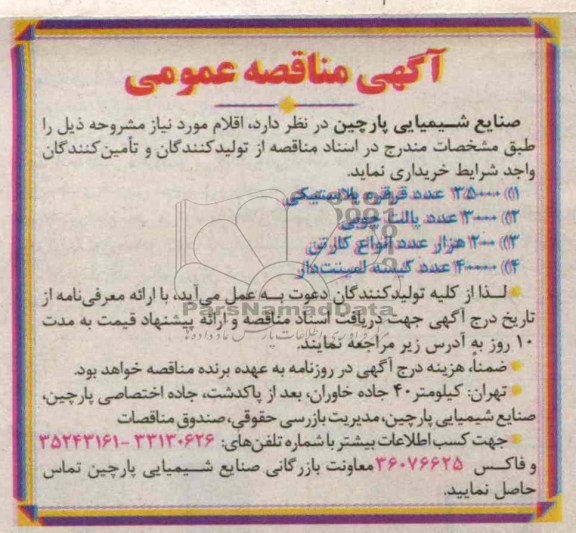 آگهی مناقصه عمومی
صنایع شیمیایی پارچین در نظر دارد، اقلام مورد نیاز مشروحه ذیل را
طبق مشخصات مندرج در اسناد مناقصه از تولیدکنندگان و تأمین‌کنندگان
واجد شرایط خریداری نماید.
۱) ۳۵۰۰۰ عدد قرقره پلاستیکی
۲) ۳۰۰۰ عدد پالت چوبی
۳) ۲۰۰ هزار عدد انواع کارتن
۴) ۴۰۰۰۰ عدد کیسه لمینت‌دار
لـذا از کلیه تولیدکنندگان دعوت به عمل می‌آید، با ارائه معرفی‌نامه از
تاریخ درج آگهی جهت دریافت اسناد مناقصه و ارائه پیشنهاد قیمت به مدت
۱۰ روز به آدرس زیر مراجعه نمایند.
ضمناً، هزینه درج آگهی در روزنامه به عهده برنده مناقصه خواهد بود.
تهران: کیلومتر ۴۰ جاده خاوران، بعد از پاکدشت، جاده اختصاصی پارچین،
صنایع شیمیایی پارچین، مدیریت بازرسی حقوقی، صندوق مناقصات
جهت کسب اطلاعات بیشتر با شماره تلفن‌های: ۳۳۱۳۰۶۲۶ - ۳۵۲۴۳۱۶۱
و فاکس ۳۶۰۷۶۶۲۵ معاونت بازرگانی صنایع شیمیایی پارچین تماس
حاصل نمایید.
ParsNamadData